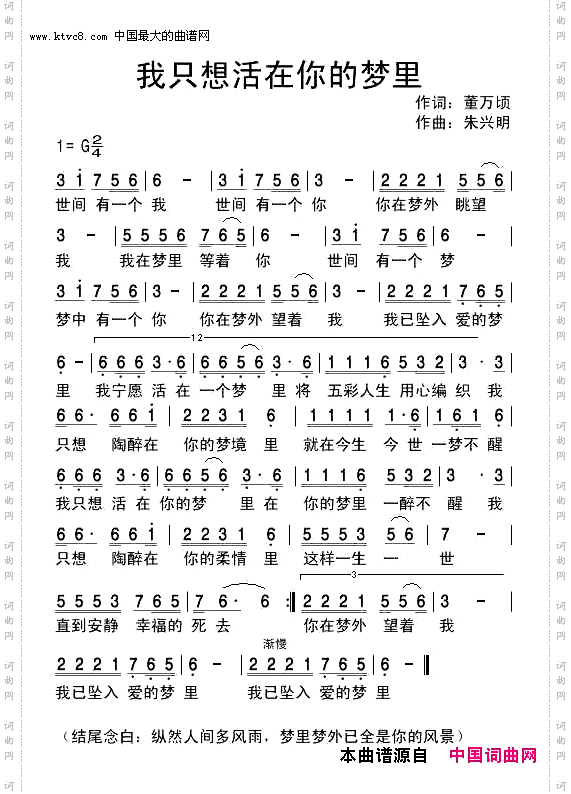 www.ktvc8.com 中国最大的曲谱网
我只想活在你的梦里
作词：董万顷
作曲：朱兴明
1=G 2/4
3 i 7 5 6 | 6 - | 3 i 7 5 6 | 3 - | 2 2 2 1 5 5 6 |
世间 有一个 我 世间 有一个 你 你在梦外 眺望
3 - | 5 5 5 6 7 6 5 | 6 - | 3 i 7 5 6 | 6 - |
我 我在梦里 等着 你 世间 有一个 梦
3 i 7 5 6 | 3 - | 2 2 2 1 5 5 6 | 3 - | 2 2 2 1 7 6 5 |
梦中 有一个 你 你在梦外 望着 我 我已坠入 爱的梦
12
6 - | 6 6 6 3 · 6 | 6 6 5 6 3 · 6 | 1 1 1 6 5 3 2 | 3 · 3 |
里 我宁愿 活 在 一个梦 里 将 五彩人生 用心编 织 我
6 6 · 6 6 i | 2 2 3 1 6 | 1 1 1 1 1 · 6 | 1 6 1 6 |
只想 陶醉在 你的梦境 里 就在今生 今 世 一梦不 醒
6 6 6 3 · 6 | 6 6 5 6 3 · 6 | 1 1 1 6 5 3 2 | 3 · 3 |
我只想 活 在 你的梦 里 在 你的梦里 一醉不 醒 我
6 6 · 6 6 i | 2 2 3 1 6 | 5 5 5 3 5 6 | 7 - |
只想 陶醉在 你的柔情 里 这样一生 一 世
3
5 5 5 3 7 6 5 | 7 6 · 6 :‖ 2 2 2 1 5 5 6 | 3 - |
直到安静 幸福的 死 去 你在梦外 望着 我
渐慢
2 2 2 1 7 6 5 | 6 - | 2 2 2 1 7 6 5 | 6 - ‖
我已坠入 爱的梦 里 我已坠入 爱的梦 里
（结尾念白：纵然人间多风雨，梦里梦外已全是你的风景）
本曲谱源自 中国词曲网